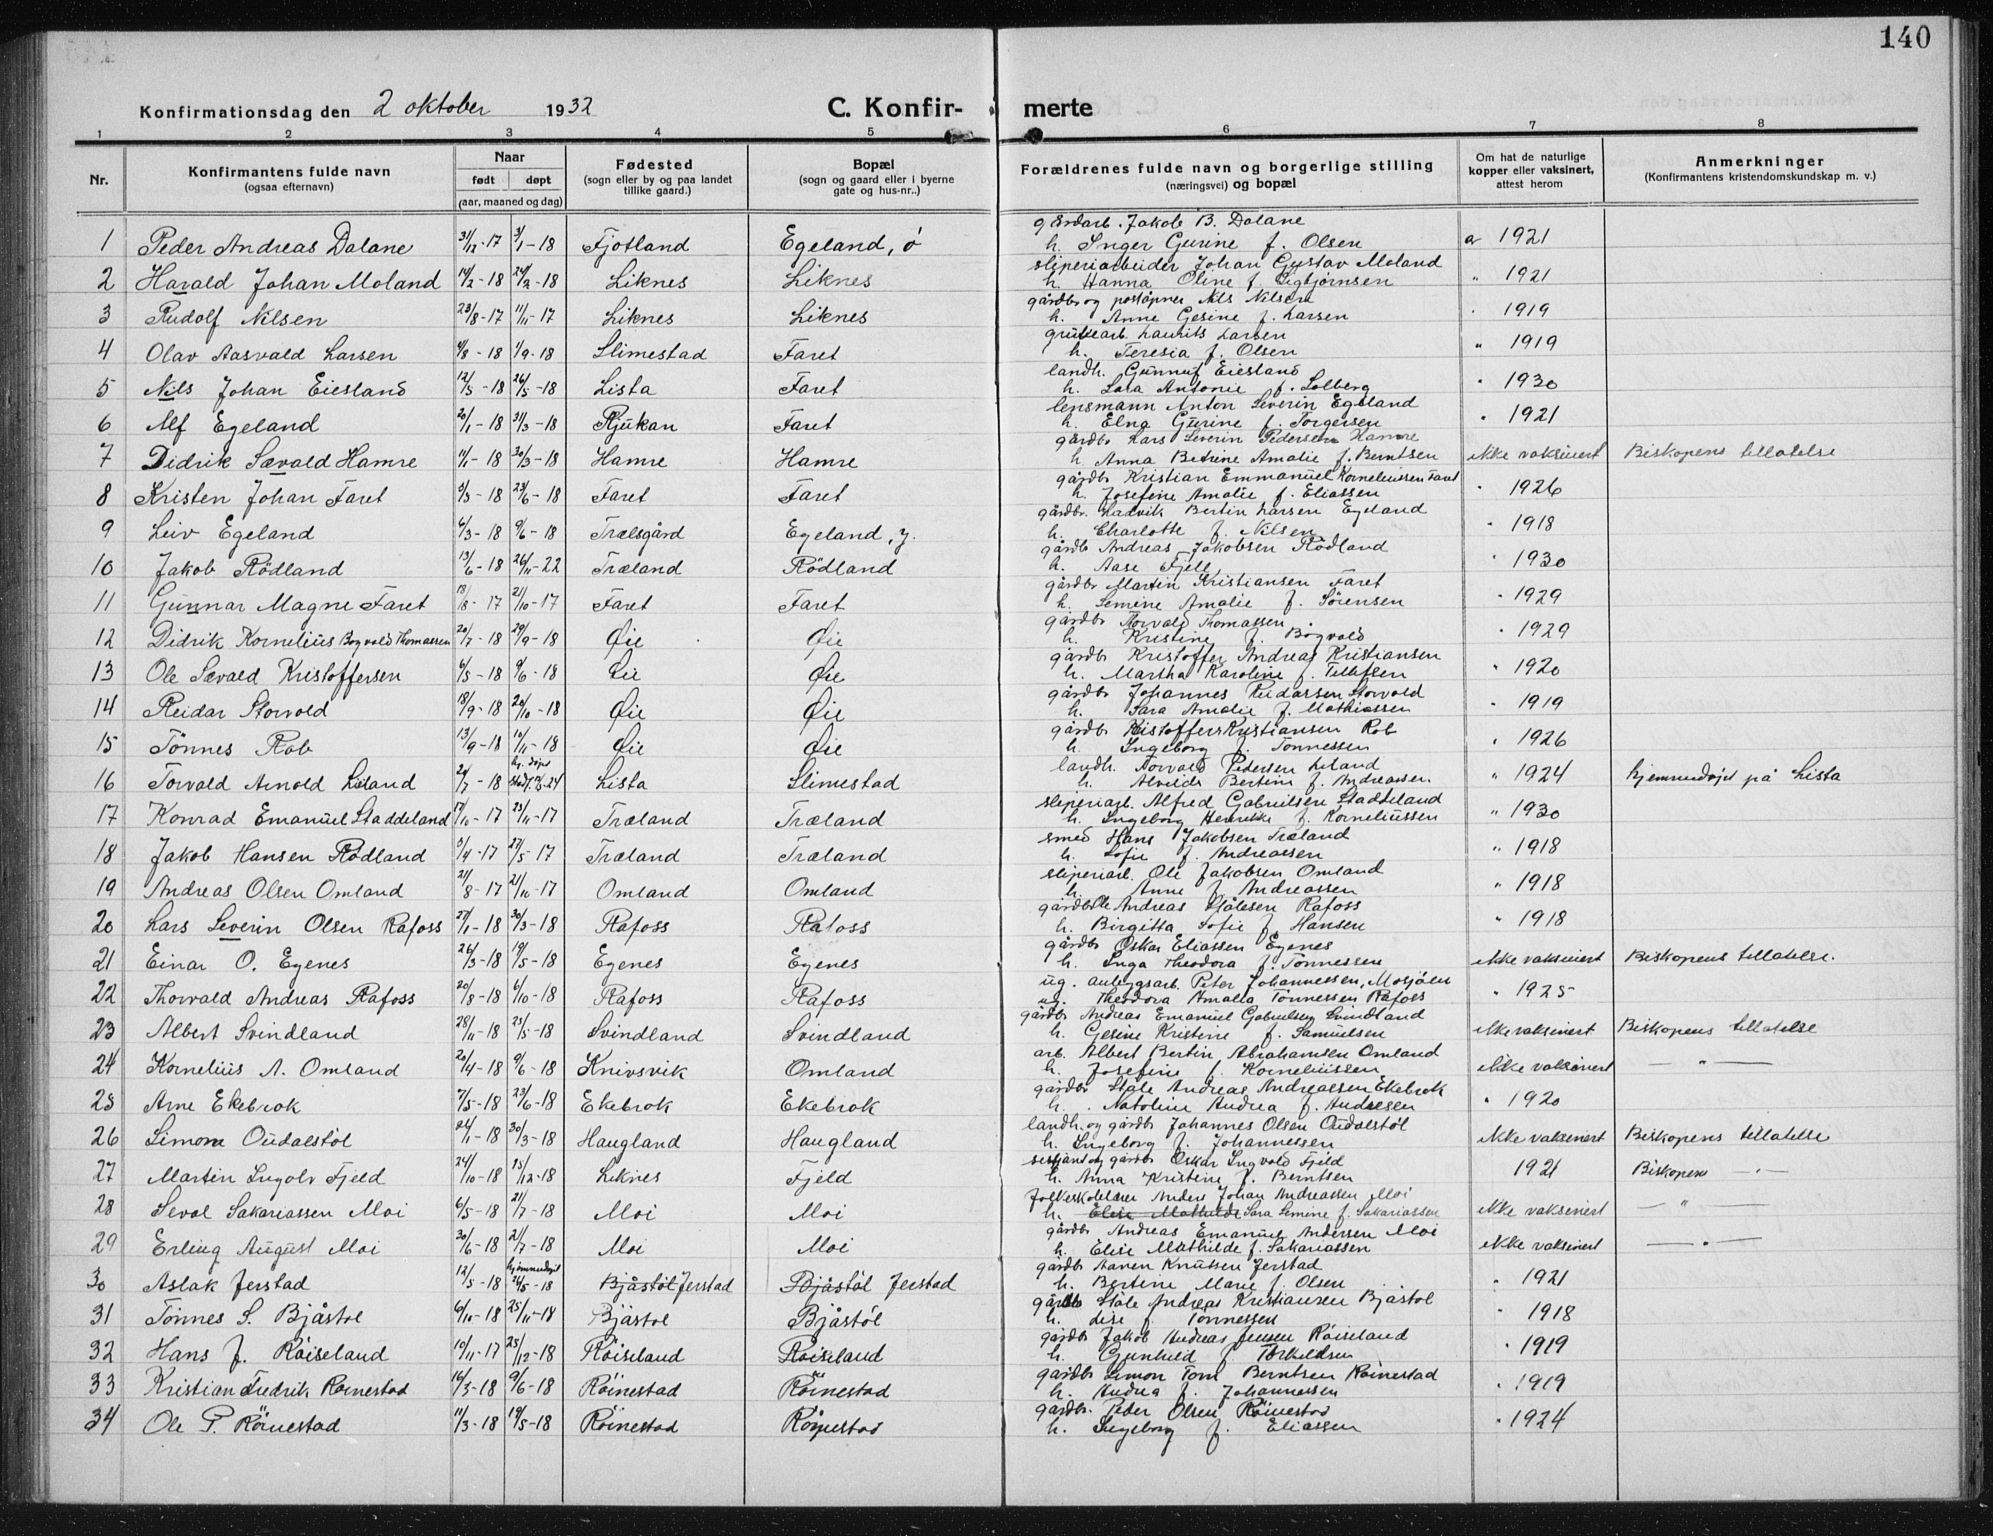 140
Konfirmationsdag den 2 oktober 1932 C. Konfir- merte
1 2 3 4 5 6 7 8
Nr. Konfirmantens fulde navn (ogsaa efternavn) Naar født døpt (aar, maaned og dag) Fødested (sogn eller by og paa landet tillike gaard.) Bopæl (sogn og gaard eller i byerne gate og hus-nr..) Forældrenes fulde navn og borgerlige stilling (næringsvei) og bopæl Om hat de naturlige kopper eller vaksinert, attest herom Anmerkninger (Konfirmantens kristendomskundskap m. v.)
gårdarb. Jakob B. Dalane
1 Peder Andreas Dalane 31/12-17 3/1-18 Fjotland Egeland, ø h. Inger Gurine f. Olsen a 1921
sliperiarbeider Johan Gustav Moland
2 Harald Johan Moland 14/2-18 24/2-18 Liknes Liknes h. Hanna Oline f. Sigbjørnsen " 1921
gårdbr og poståpner Nils Nilsen
3 Rudolf Nilsen 23/8-17 11/11-17 Liknes Liknes h. Anne Gesine f. Larsen " 1919
grubearb. Laurits Larsen
4 Olav Aasvald Larsen 4/8-18 1/9-18 Slimestad Faret h. Teresia f. Olsen " 1919
landh. Gunnuf Eiesland
5 Nils Johan Eiesland 12/5-18 26/5-18 Lista Faret h. Sara Antonie f. Solberg " 1930
lensmann Anton Severin Egeland
6 Alf Egeland 20/1-18 31/3-18 Rjukan Faret h. Elna Gurine f. Torgersen " 1921
gårdbr Lars Severin Pedersen Hamre
7 Didrik Sævald Hamre 11/1-18 30/3-18 Hamre Hamre h. Anna Betrine Amalie f. Berntsen ikke vaksinert Biskopens tillatelse
gårdbr Kristian Emmanuel Korneliussen Faret
8 Kristen Johan Faret 5/3-18 23/6-18 Faret Faret h. Josefine Amalie f. Eliassen " 1926
gårdbr. Ludvik Bertin Larsen Egeland
9 Leiv Egeland 6/3-18 9/6-18 Trælsgård Egeland, y. h. Charlotte f. Nilsen " 1918
gårdb Andreas Jakobsen Rødland
10 Jakob Rødland 13/6-18 26/11-22 Træland Rødland h. Aase Fjell " 1930
gårdbr Martin Kristiansen Faret
11 Gunnar Magne Faret 18/8-17 21/10-17 Faret Faret h. Semine Amalie f. Sörensen " 1929
gårdbr Torvald Thomassen
12 Didrik Kornelius Bogvald Thomassen 20/7-18 29/9-18 Øie Øie h. Kristine f. Bogvald " 1929
gårdbr Kristoffer Andreas Kristiansen
13 Ole Sævald Kristoffersen 6/5-18 9/6-18 Øie Øie h. Martha Karoline f. Tellefsen " 1920
gårdbr Johannes Reidarsen Storvold
14 Reidar Storvold 18/9-18 20/10-18 Øie Øie h. Sara Amalie f. Mathiassen " 1919
gårdbr Kristoffer Kristiansen Rob
15 Tönnes Rob 13/9-18 10/11-18 Øie Øie h. Ingeborg f. Tonnessen " 1926
landh. Torvald Pedersen Leland
16 Torvald Arnold Leland 24/7-18 hj. døpt Lista Slimestad h. Alvilde Bertine f. Andreassen. " 1924 hjemmedøpt på Lista
sliperiarb. Alfred Gabrielsen Staddeland
17 Konrad Emanuel Staddeland 17/10-17 25/11-17 Træland Træland h. Ingeborg Henrikke f. Korneliussen " 1930
smed Hans Jakobsen Træland
18 Jakob Hansen Rødland 3/4-17 27/5-17 Træland Træland h. Sofie f. Andreassen " 1918
sliperiarb. Ole Jakobsen Omland
19 Andreas Olsen Omland 21/8-17 21/10-17 Omland Omland h. Anne f. Andreassen " 1918
gårdbr Ole Andreas Stålesen Rafoss
20 Lars Severin Olsen Rafoss 27/1-18 30/3-18 Rafoss Rafoss h. Birgitta Sofie f. Hansen " 1918
gårdbr Oskar Eliassen Egenes
21 Einar O. Egenes 26/3-18 19/5-18 Egenes Egenes h. Inga Theodora f. Tönnessen ikke vaksinert Biskopens tillatelse.
ug. anleggsarb. Peter Johannessen, Mosjøen
22 Thorvald Andreas Rafoss 20/8-18 6/10-18 Rafoss Rafoss ug. Theodora Amalia Tønnessen Rafoss " 1925
gårdbr Andreas Emanuel Gabrielsen Svindland
23 Albert Svindland 28/11-18 25/5-18 Svindland Svindland h. Gesine Kristine f. Samuelsen ikke vaksinert Biskopens tillatelse
arb. Albert Bertin Abrahamsen Omland
24 Kornelius A. Omland 20/4-18 9/6-18 Knivsvik Omland h. Josefine f. Korneliussen ikke vaksinert — " —
gårdbr Ståle Andreas Andreassen Ekebrok
25 Arne Ekebrok 7/5-18 23/6-18 Ekebrok Ekebrok h. Natoline Andrea f. Andresen " 1920
landh. og gårdbr Johannes Olsen Oudalstöl
26 Simon Oudalstöl 26/1-18 30/3-18 Haugland Haugland h. Ingeborg f. Johannessen ikke vaksinert Biskopens tillatelse
sersjant og gårdbr Oskar Ingvald Fjeld
27 Martin Ingolv Fjeld 24/10-18 15/12-18 Liknes Fjeld h. Anna Kristine f. Berntsen 1921 Biskopens — " —
folkeskolelærer Anders Johan Andreassen Moi
28 Sevol Sakariassen Moi 6/5-18 21/7-18 Moi Moi h. Elise Mathilde Sara Semine f. Sakariassen ikke vaksinert — " —
gårdbr Andreas Emanuel Andersen Moi
29 Erling August Moi 30/6-18 21/7-18 Moi Moi h. Elise Mathilde f. Sakariassen ikke vaksinert — " —
gårdbr Aanen Knutsen Jerstad
30 Aslak Jerstad 12/5-18 hjemmedøpt 26/5-18 Bjåstöl Jerstad Bjåstöl Jerstad h. Bertine Marie f. Olsen " 1921
gårdbr Ståle Andreas Kristiansen Bjåstol
31 Tönnes S. Bjåstol 6/10-18 25/11-18 Bjåstol Bjåstöl h. Lise f. Tönnessen " 1918
gårdbr Jakob Andreas Jensen Röiseland
32 Hans J. Röiseland 19/11-17 25/12-18 Röiseland Röiseland h. Gunhild f. Torkeldsen " 1919
gårdbr Simon Tom Berntsen Röinestad
33 Kristian Fredrik Roinestad 16/3-18 9/6-18 Röinestad Röinestad h. Andrea f. Johannessen " 1919
gårdbr. Peder Olsen Röinestad
34 Ole P. Röinestad 11/3-18 19/5-18 Röinestad Röinestad h. Ingeborg f. Eliassen " 1924